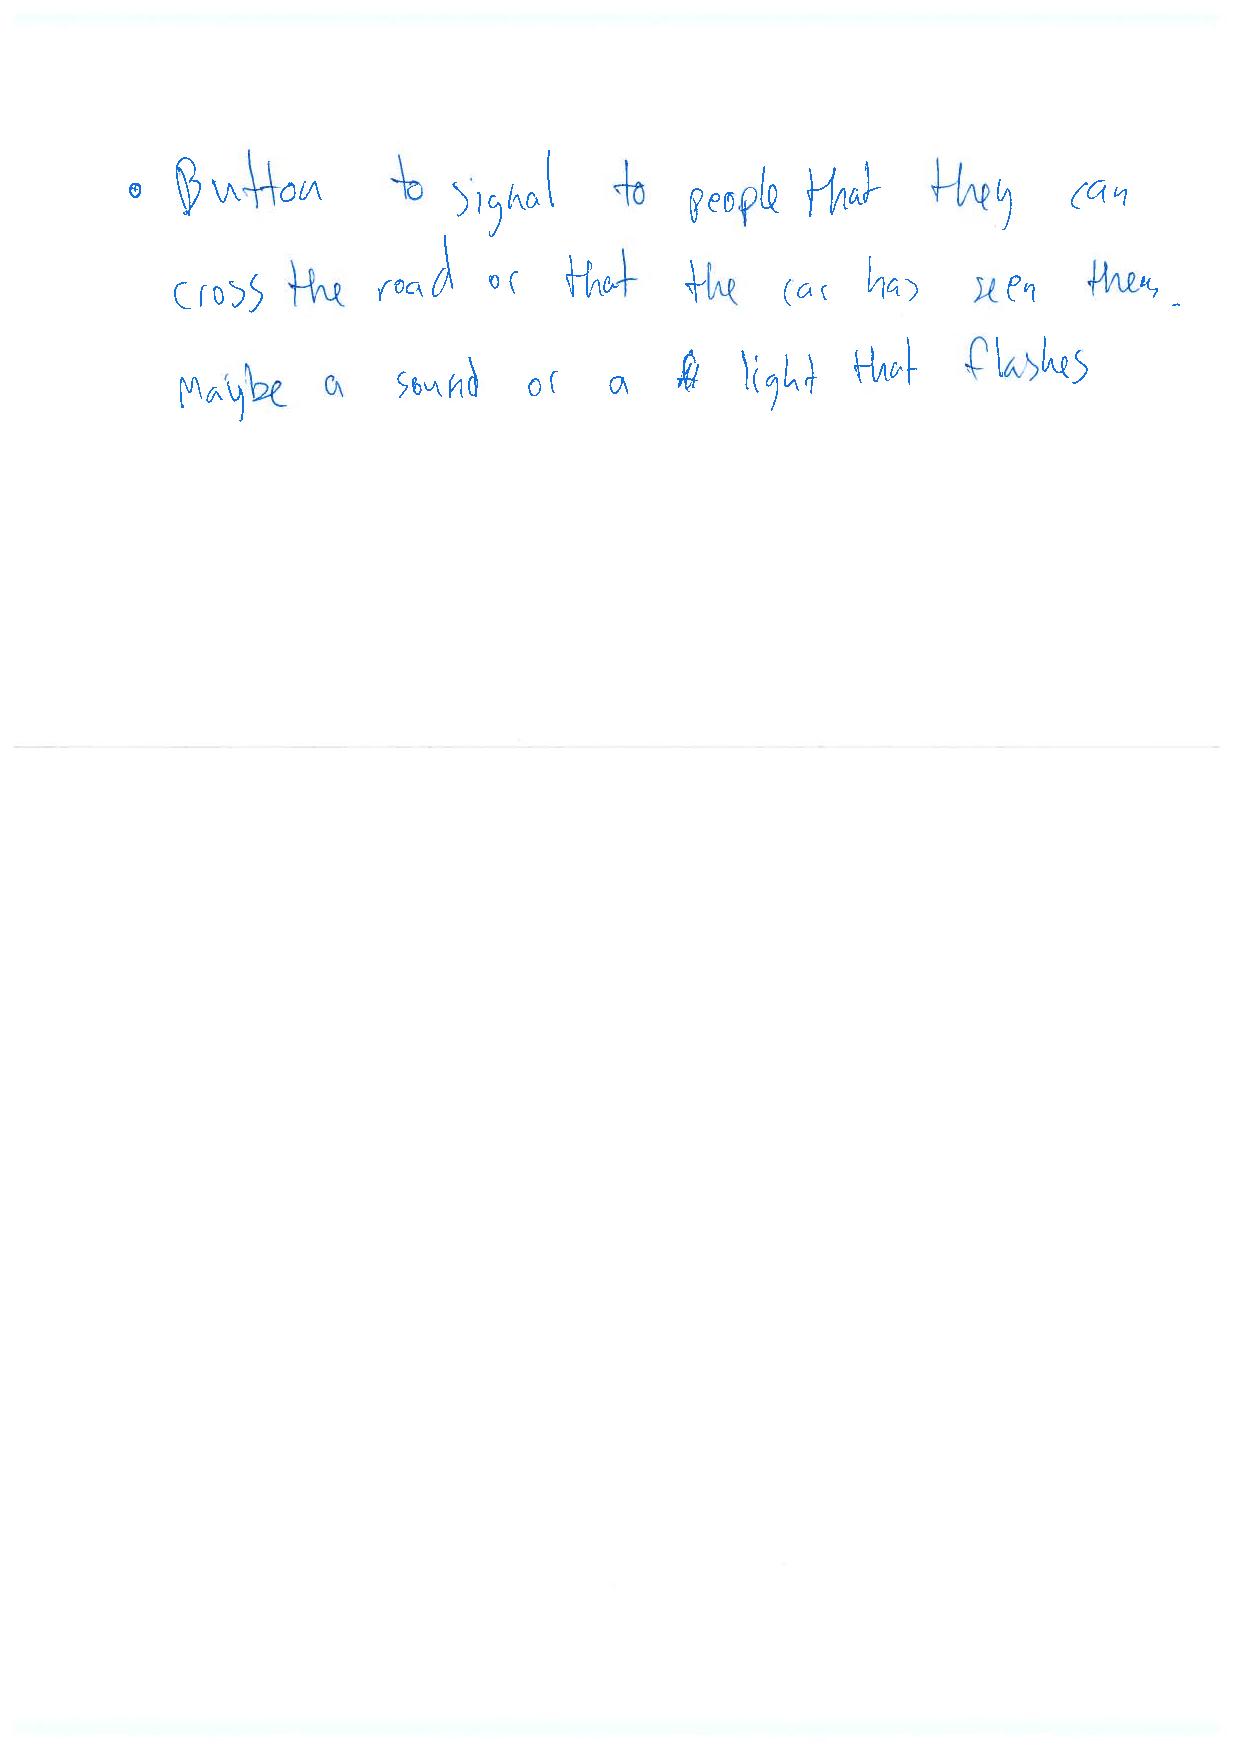 • Button to signal to people that they can
cross the road or that the car has seen them.
Maybe a sound or a light that flashes